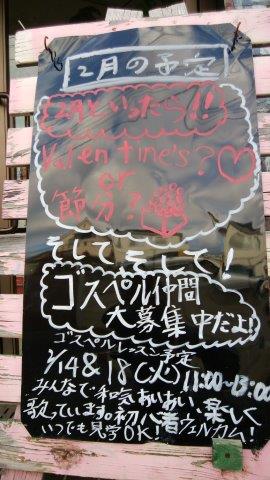 2月の予定
2月といったら!!
Valentine's?♡
or
節分?
そしてそして!
ゴスペル仲間
大募集中だよ!
ゴスペルレッスン予定
2/14&18(火)11:00~13:00
みんなで和気あいあい、楽しく
歌っています。初心者ウェルカム!
いつでも見学OK!